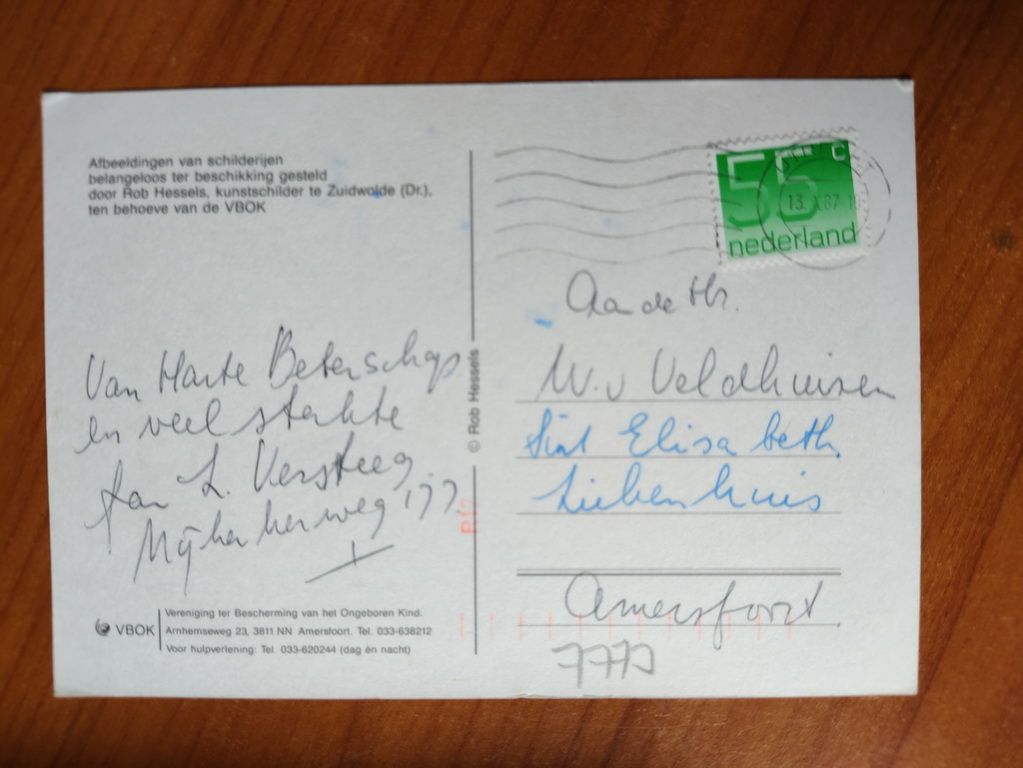 Afbeeldingen van schilderijen
belangeloos ter beschikking gesteld
door Rob Hessels, kunstschilder te Zuidwolde (Dr.),
ten behoeve van de VBOK
Van Harte Beterschap
en veel sterkte
fam L. Versteeg
Nijkerkerweg 177
VBOK
Vereniging ter Bescherming van het Ongeboren Kind.
Arnhemseweg 23, 3811 NN Amersfoort. Tel. 033-638212
Voor hulpverlening: Tel. 033-620244 (dag èn nacht)
© Rob Hessels
55 c
nederland
13 X 87
Aan de Hr.
W. v Veldhuisen
Sint Elisabeth
Ziekenhuis
Amersfoort.